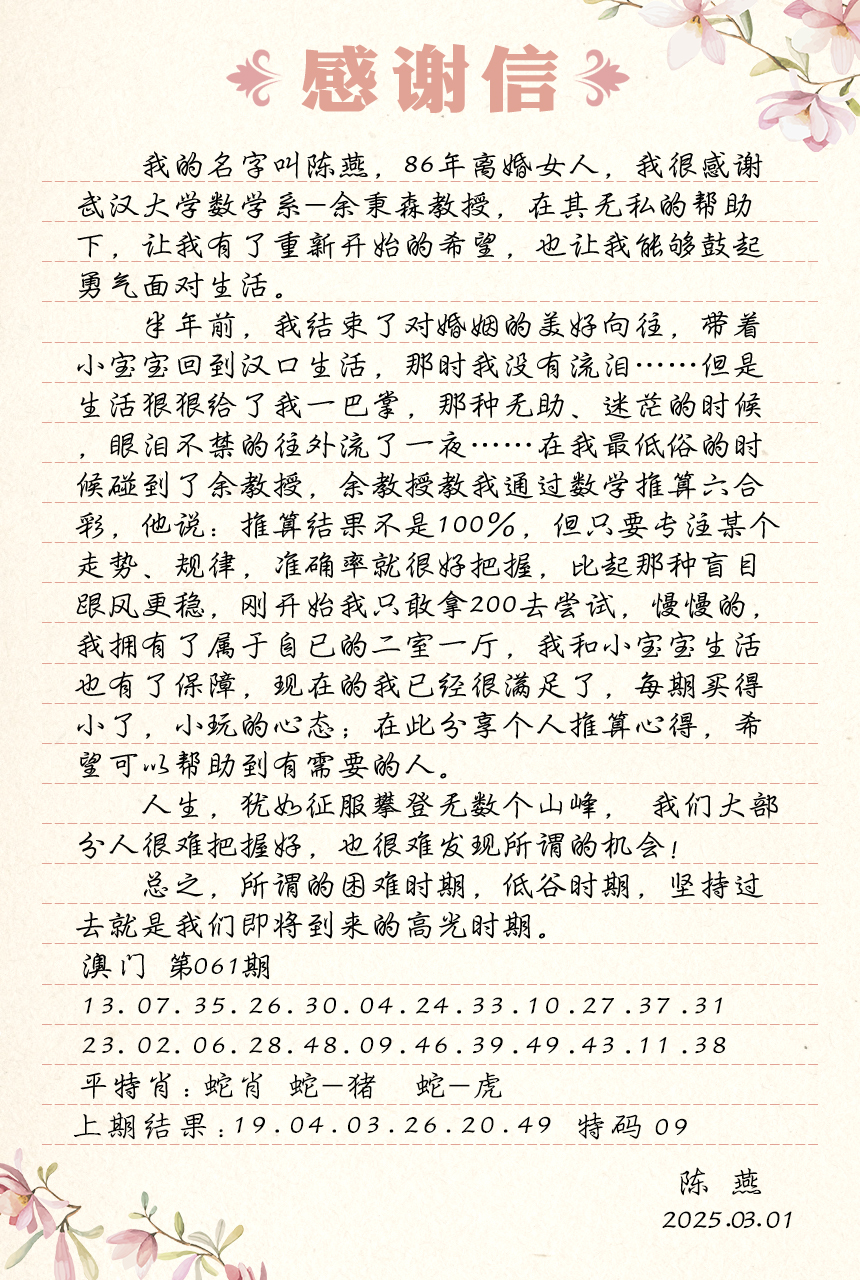 感谢信
我的名字叫陈燕，86年离婚女人，我很感谢
武汉大学数学系—余秉森教授，在其无私的帮助
下，让我有了重新开始的希望，也让我能够鼓起
勇气面对生活。
半年前，我结束了对婚姻的美好向往，带着
小宝宝回到汉口生活，那时我没有流泪……但是
生活狠狠给了我一巴掌，那种无助、迷茫的时候
，眼泪不禁的往外流了一夜……在我最低俗的时
候碰到了余教授，余教授教我通过数学推算六合
彩，他说：推算结果不是100%，但只要专注某个
走势、规律，准确率就很好把握，比起那种盲目
跟风更稳，刚开始我只敢拿200去尝试，慢慢的，
我拥有了属于自已的二室一厅，我和小宝宝生活
也有了保障，现在的我已经很满足了，每期买得
小了，小玩的心态；在此分享个人推算心得，希
望可以帮助到有需要的人。
人生，犹如征服攀登无数个山峰， 我们大部
分人很难把握好，也很难发现所谓的机会！
总之，所谓的困难时期，低谷时期，坚持过
去就是我们即将到来的高光时期。
澳门 第061期
13.07.35.26.30.04.24.33.10.27.37.31
23.02.06.28.48.09.46.39.49.43.11.38
平特肖：蛇肖 蛇—猪 蛇—虎
上期结果：19.04.03.26.20.49 特码 09
陈 燕
2025.03.01